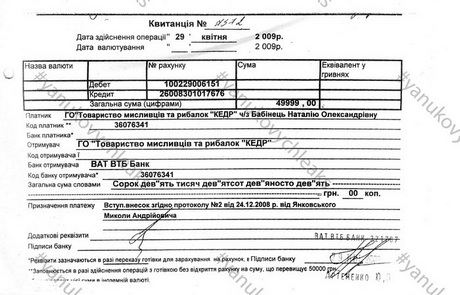 Квитанція №
Дата здійснення операції" 29 квітня 2 009р.
Дата валютування 2 009р.
Назва валюти № рахунку Сума Еквівалент у гривнях
Дебет 100229006151
Кредит 26008301017676
Загальна сума (цифрами) 49999 , 00
Платник ГО"Товариство мисливців та рибалок "КЕДР" ч/з Бабінець Наталію Олександрівну
Код платник ** 36076341
Банк платника*
Отримувач ГО "Товариство мисливців та рибалок "КЕДР"
Код отримувача
Банк отримувача ВАТ ВТБ Банк
Код банку отримувача* 36076341
Загальна сума словами Сорок дев"ять тисяч дев"ятсот дев"яносто дев"ять
грн. 00 коп.
Призначення платежу Вступ.внесок згідно протоколу №2 від 24.12.2008 р. від Янковського
Миколи Андрійовича
Додаткові реквізити
ВАТ ВТБ БАНК
Підписи банку
*Реквізити зазначаються в разі переказу готівки для зарахування на рахунок, в Підписи банку
**Заповнюється в разі здійснення операцій з готівкою без відкриття рахунку на суму, що перевищує 50000 грн.
в іноземній валюті.
#yanukovychleaks